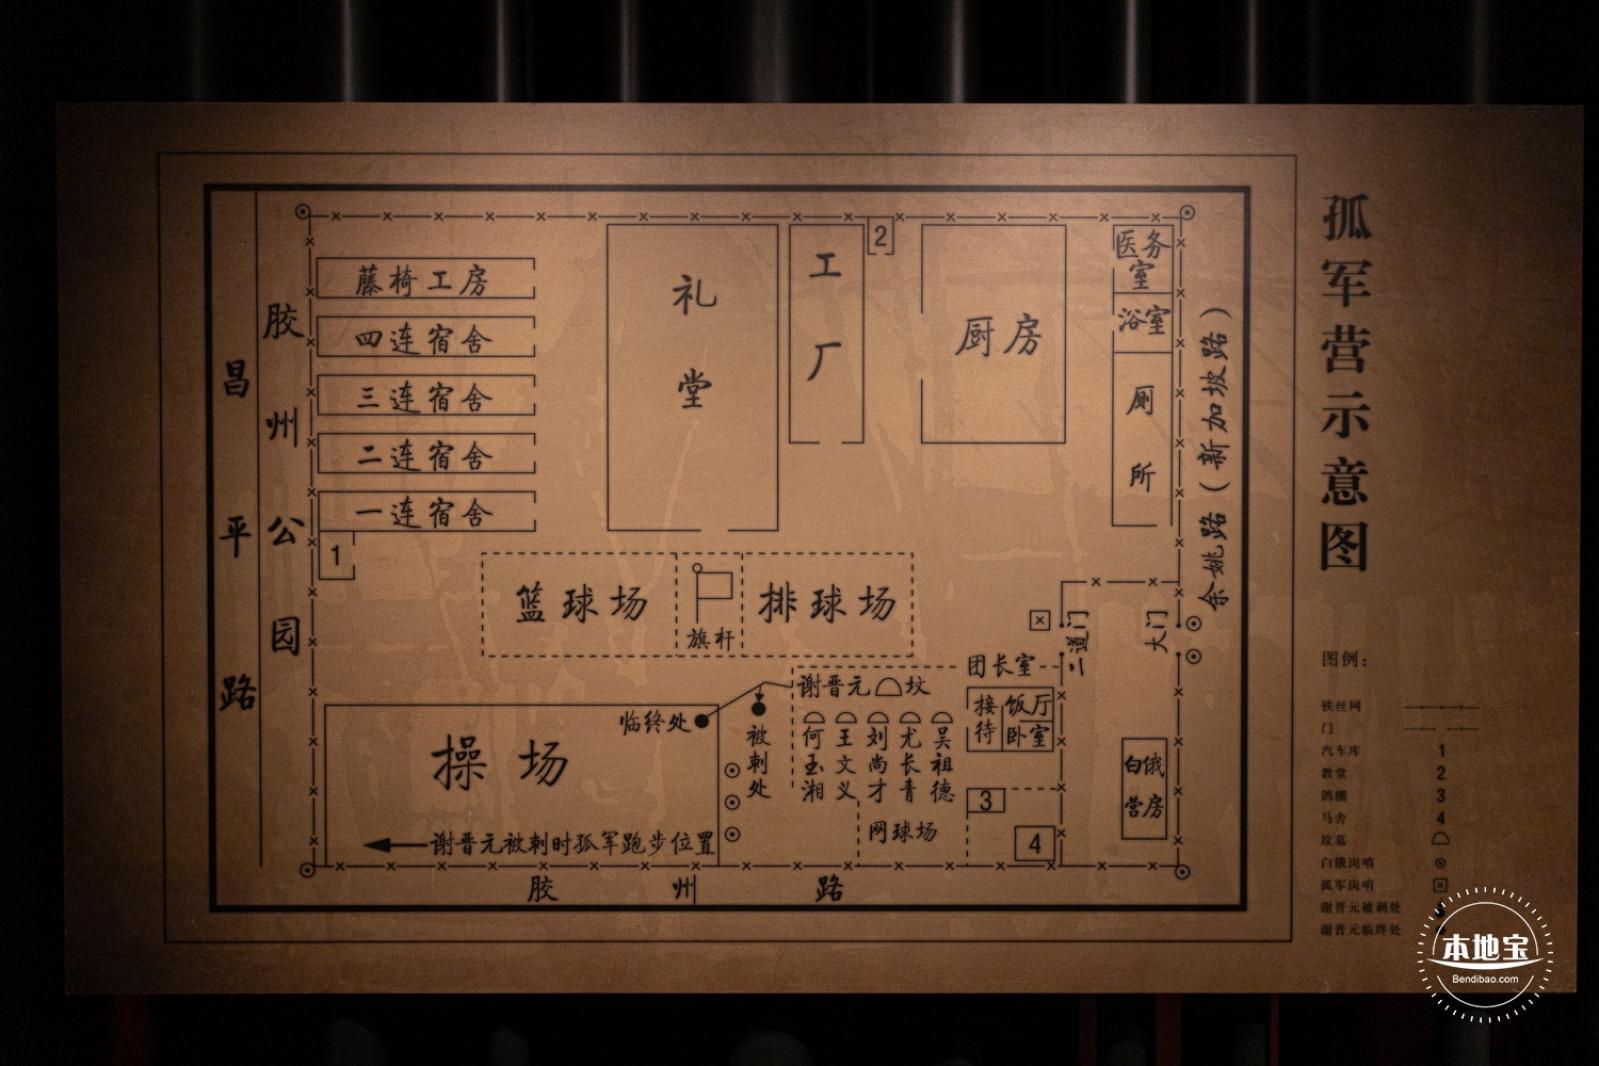 孤军营示意图
昌平路
胶州公园
藤椅工房
四连宿舍
三连宿舍
二连宿舍
一连宿舍
1
礼堂
工厂
2
厨房
医务室
浴室
厕所
余姚路（新加坡路）
篮球场
旗杆
排球场
二道门
大门
团长室
接待
饭厅
卧室
谢晋元坟
何玉湘
王文义
刘尚才
尤长青
吴祖德
临终处
被刺处
操场
谢晋元被刺时孤军跑步位置
网球场
3
4
白俄营房
胶州路
图例：
铁丝网
门
汽车库 1
教堂 2
鸽棚 3
马舍 4
坟墓
白俄岗哨
孤军岗哨
谢晋元被刺处
谢晋元临终处
本地宝
Bendibao.com